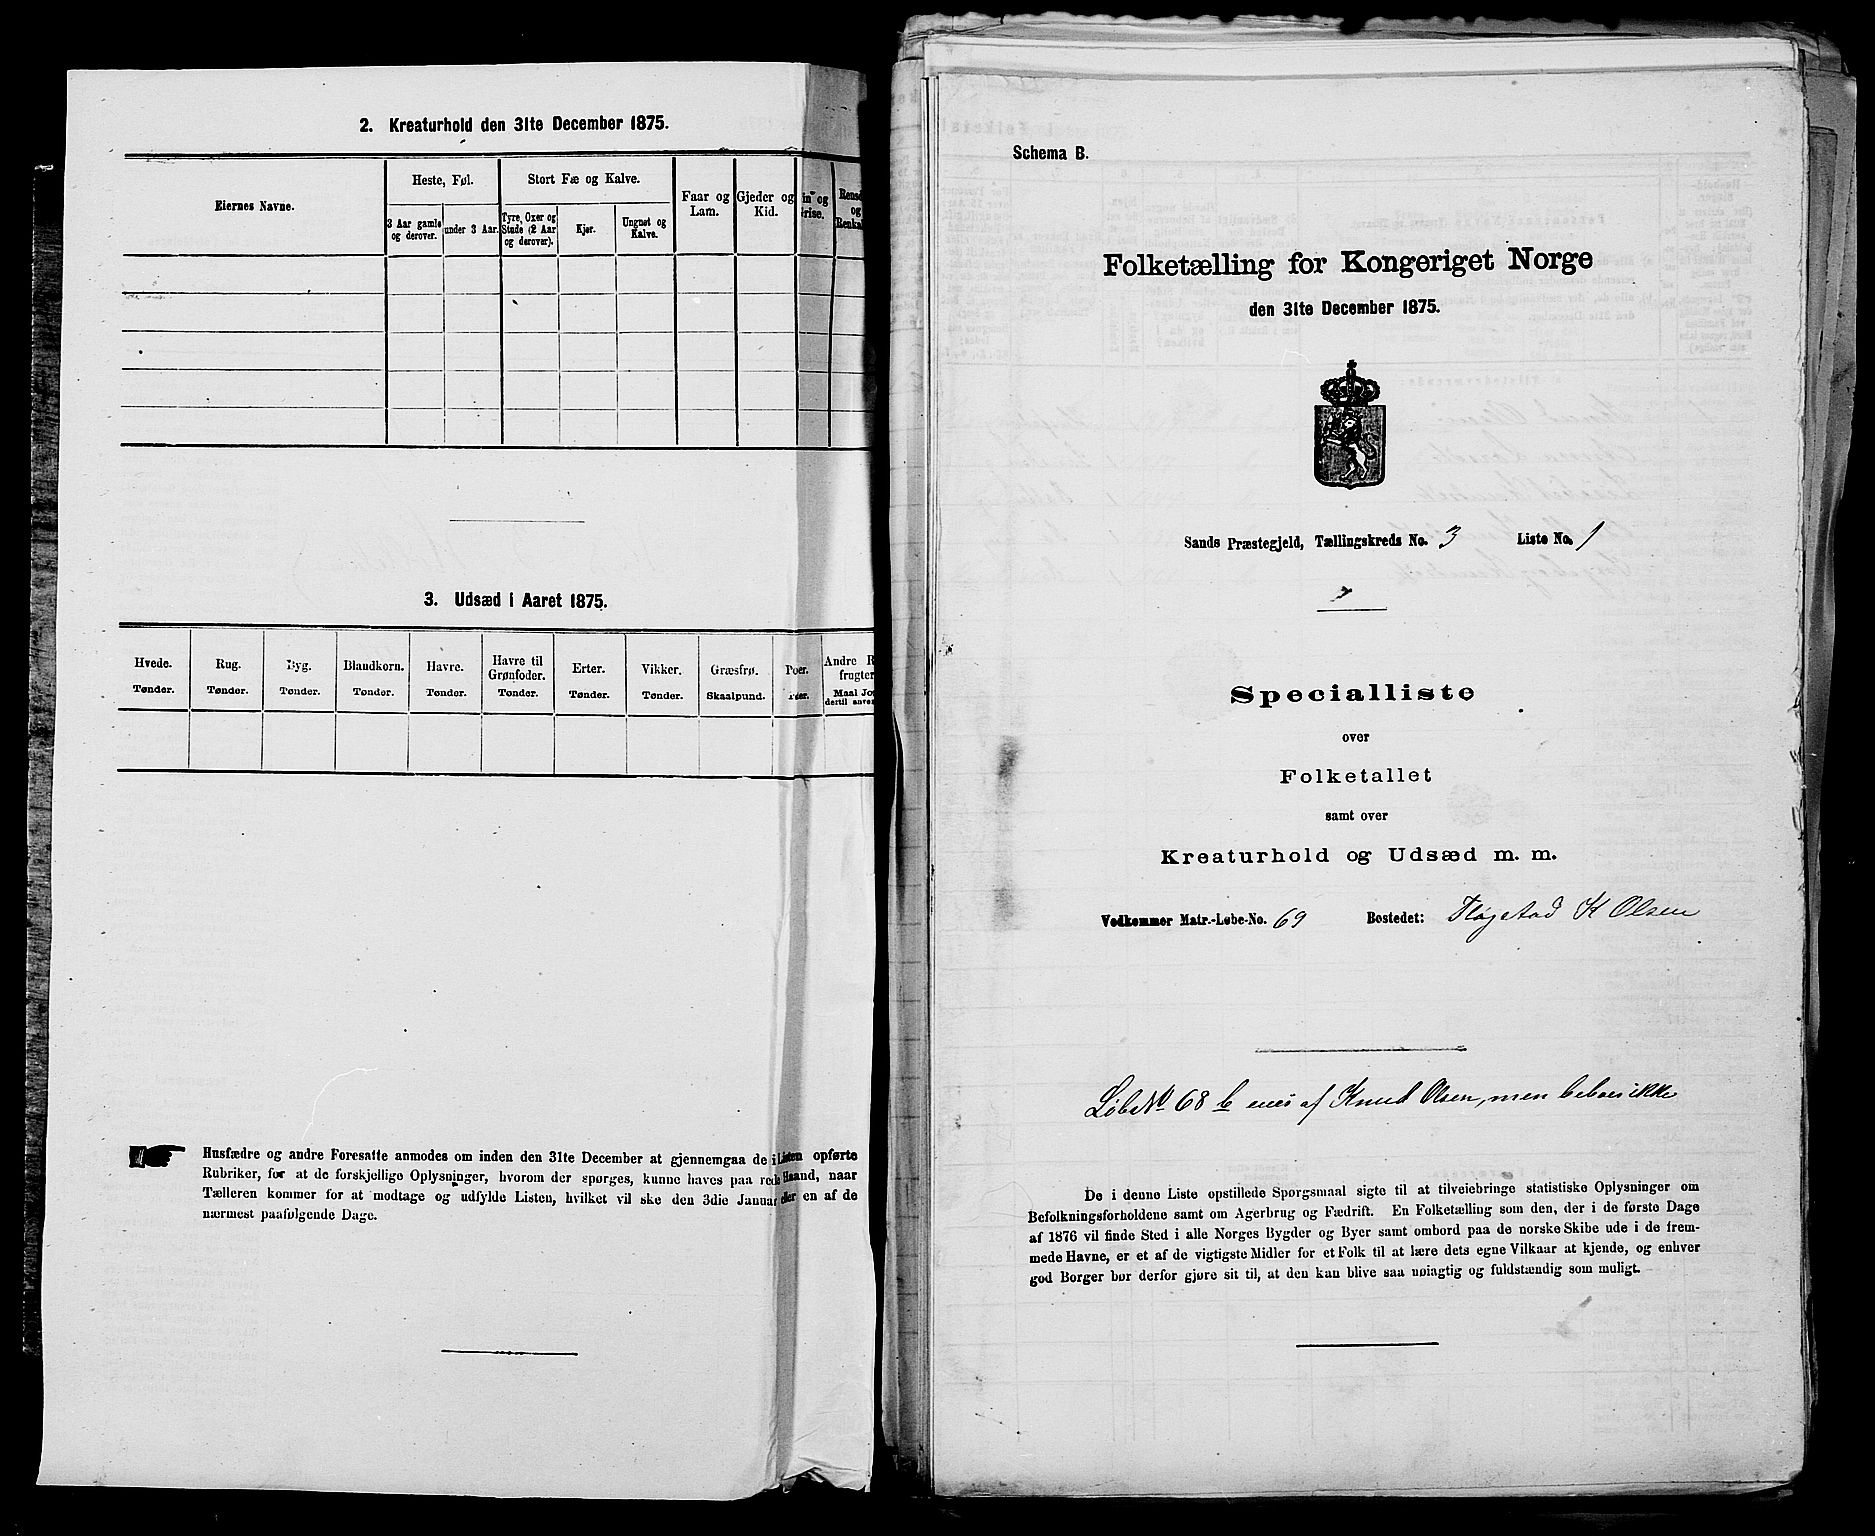 2. Kreaturhold den 31te December 1875.
Eiernes Navne.
Heste, Føl.
3 Aar gamle og derover.
under 3 Aar.
Stort Fæ og Kalve.
Tyre, Oxer og Stude (2 Aar og derover).
Kjør.
Ungnøt og Kalve.
Faar og Lam.
Gjeder og Kid.
3. Udsæd i Aaret 1875.
Hvede. Rug. Byg. Blandkorn. Havre. Havre til Grønfoder. Erter. Vikker. Græsfrø. Poer. Andre R
frugter
Tønder. Tønder. Tønder. Tønder. Tønder. Tønder. Tønder. Tønder. Skaalpund. Maal Jo
dertil anve
Husfædre og andre Foresatte anmodes om inden den 31te December at gjennemgaa de i Listen opførte
Rubriker, for at de forskjellige Oplysninger, hvorom der spørges, kunne haves paa rede Haand, naar
Tælleren kommer for at modtage og udfylde Listen, hvilket vil ske den 3die Januar eller en af de
nærmest paafølgende Dage.
Schema B.
Folketælling for Kongeriget Norge
den 31te December 1875.
Sands Præstegjeld, Tællingskreds No. 3 Liste No. 1
Specialliste
over
Folketallet
samt over
Kreaturhold og Udsæd m. m.
Vedkommer Matr.-Løbe-No. 69 Bostedet: Fløgstad K Olsen
Løbe No 68 b eies af Knud Olsen, men beboes ikke
De i denne Liste opstillede Spørgsmaal sigte til at tilveiebringe statistiske Oplysninger om
Befolkningsforholdene samt om Agerbrug og Fædrift. En Folketælling som den, der i de første Dage
af 1876 vil finde Sted i alle Norges Bygder og Byer samt ombord paa de norske Skibe ude i de frem-
mede Havne, er et af de vigtigste Midler for et Folk til at lære dets egne Vilkaar at kjende, og enhver
god Borger bør derfor gjøre sit til, at den kan blive saa nøiagtig og fuldstændig som muligt.